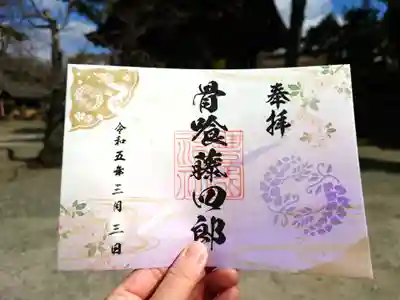 奉拝
骨喰藤四郎
令和五年三月三日